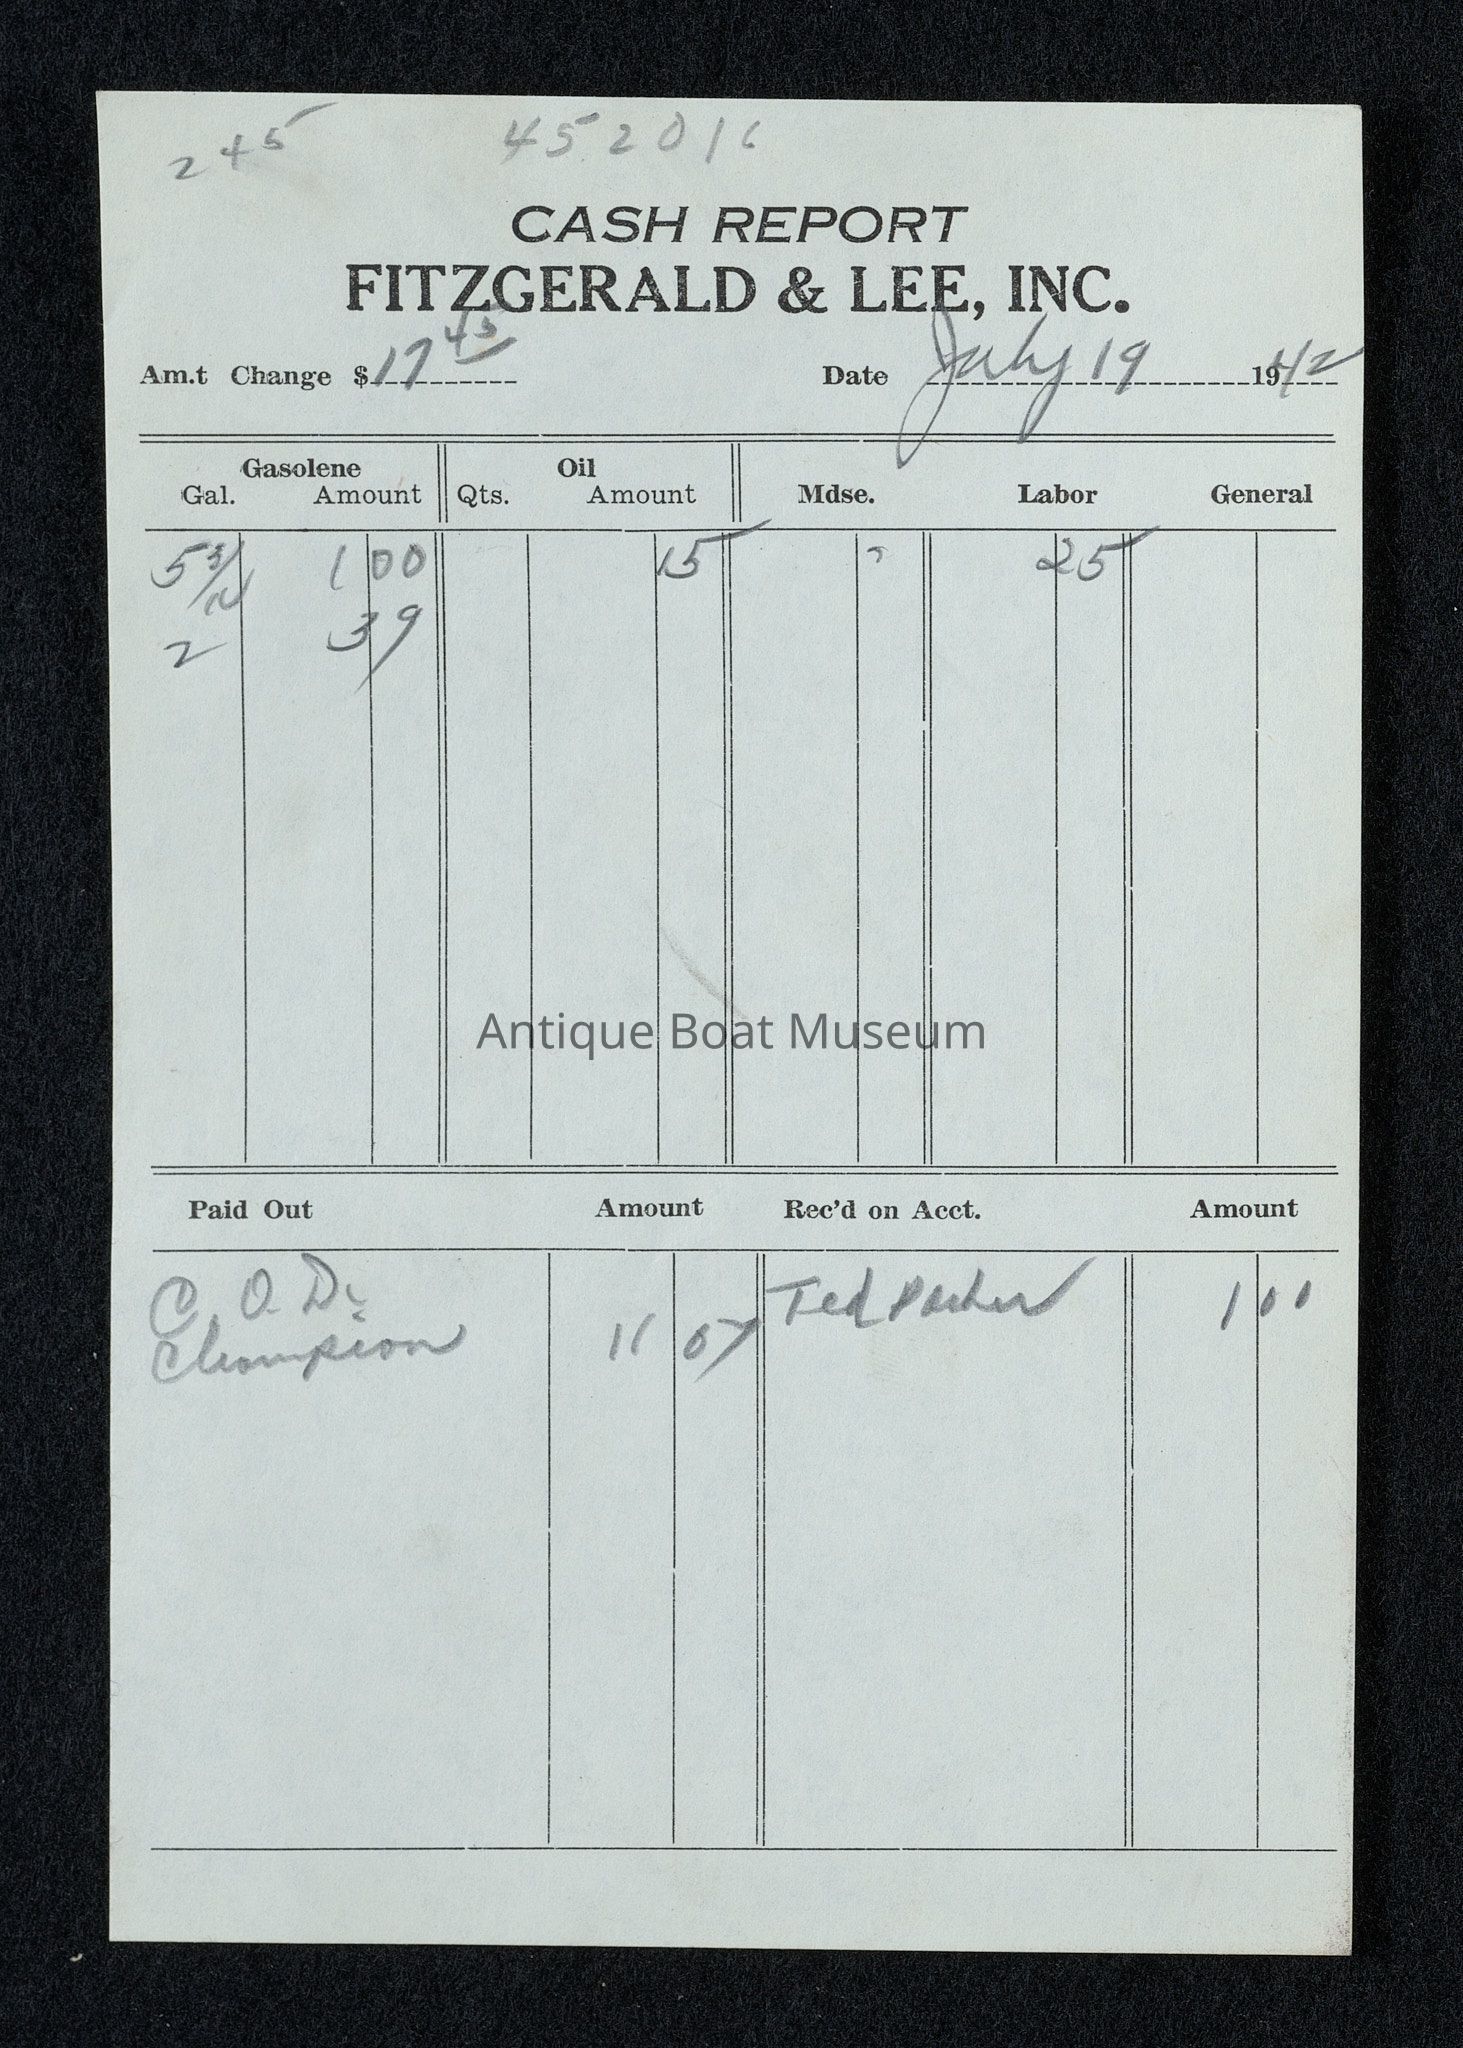 245 452016
CASH REPORT
FITZGERALD & LEE, INC.
Am.t Change $ 17 45 Date July 19 1942
Gasolene Oil
Gal. Amount Qts. Amount Mdse. Labor General
5 1 00 15 25
2 39
Antique Boat Museum
Paid Out Amount Rec'd on Acct. Amount
C. O. D. Ted Parker 1 00
Champion 11 07